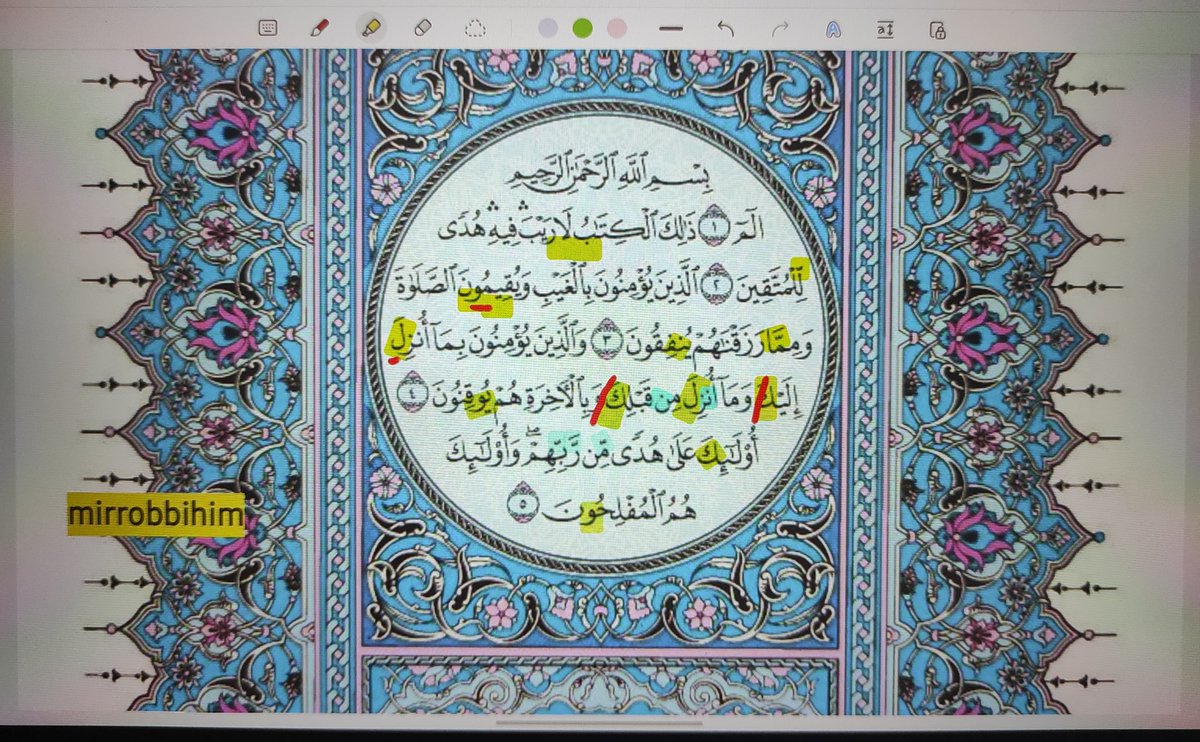 بِسْمِ ٱللَّهِ ٱلرَّحْمَٰنِ ٱلرَّحِيمِ
الٓمٓ ١ ذَٰلِكَ ٱلْكِتَٰبُ لَا رَيْبَ ۛ فِيهِ ۛ هُدًى
لِّلْمُتَّقِينَ ٢ ٱلَّذِينَ يُؤْمِنُونَ بِٱلْغَيْبِ وَيُقِيمُونَ ٱلصَّلَوٰةَ
وَمِمَّا رَزَقْنَٰهُمْ يُنفِقُونَ ٣ وَٱلَّذِينَ يُؤْمِنُونَ بِمَآ أُنزِلَ
إِلَيْكَ وَمَآ أُنزِلَ مِن قَبْلِكَ وَبِٱلْءَاخِرَةِ هُمْ يُوقِنُونَ ٤
أُو۟لَٰٓئِكَ عَلَىٰ هُدًى مِّن رَّبِّهِمْ ۖ وَأُو۟لَٰٓئِكَ
هُمُ ٱلْمُفْلِحُونَ ٥
mirrobbihim